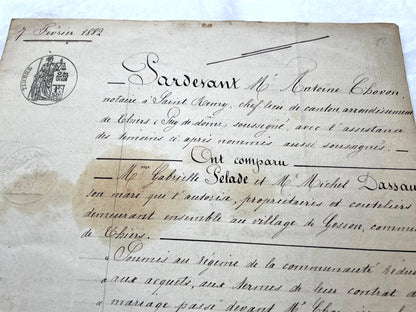 7 Février 1882
TIMBRE
Pardevant Me Antoine Chovon
notaire à Saint Remy, chef lieu de canton arrondissement
de Thiers (Puy de dôme) soussigné, avec l'assistance
des témoins ci après nommés aussi soussignés.
Ont comparu
Mme Gabrielle Pelade et Mr Michel Dassau
son mari qui l'autorise, propriétaires et couteliers
demeurant ensemble au village de Gesson, commu
de Thiers.
Soumis au régime de la communauté rédui
aux acquets, aux termes de leur contrat d
mariage passé devant Me